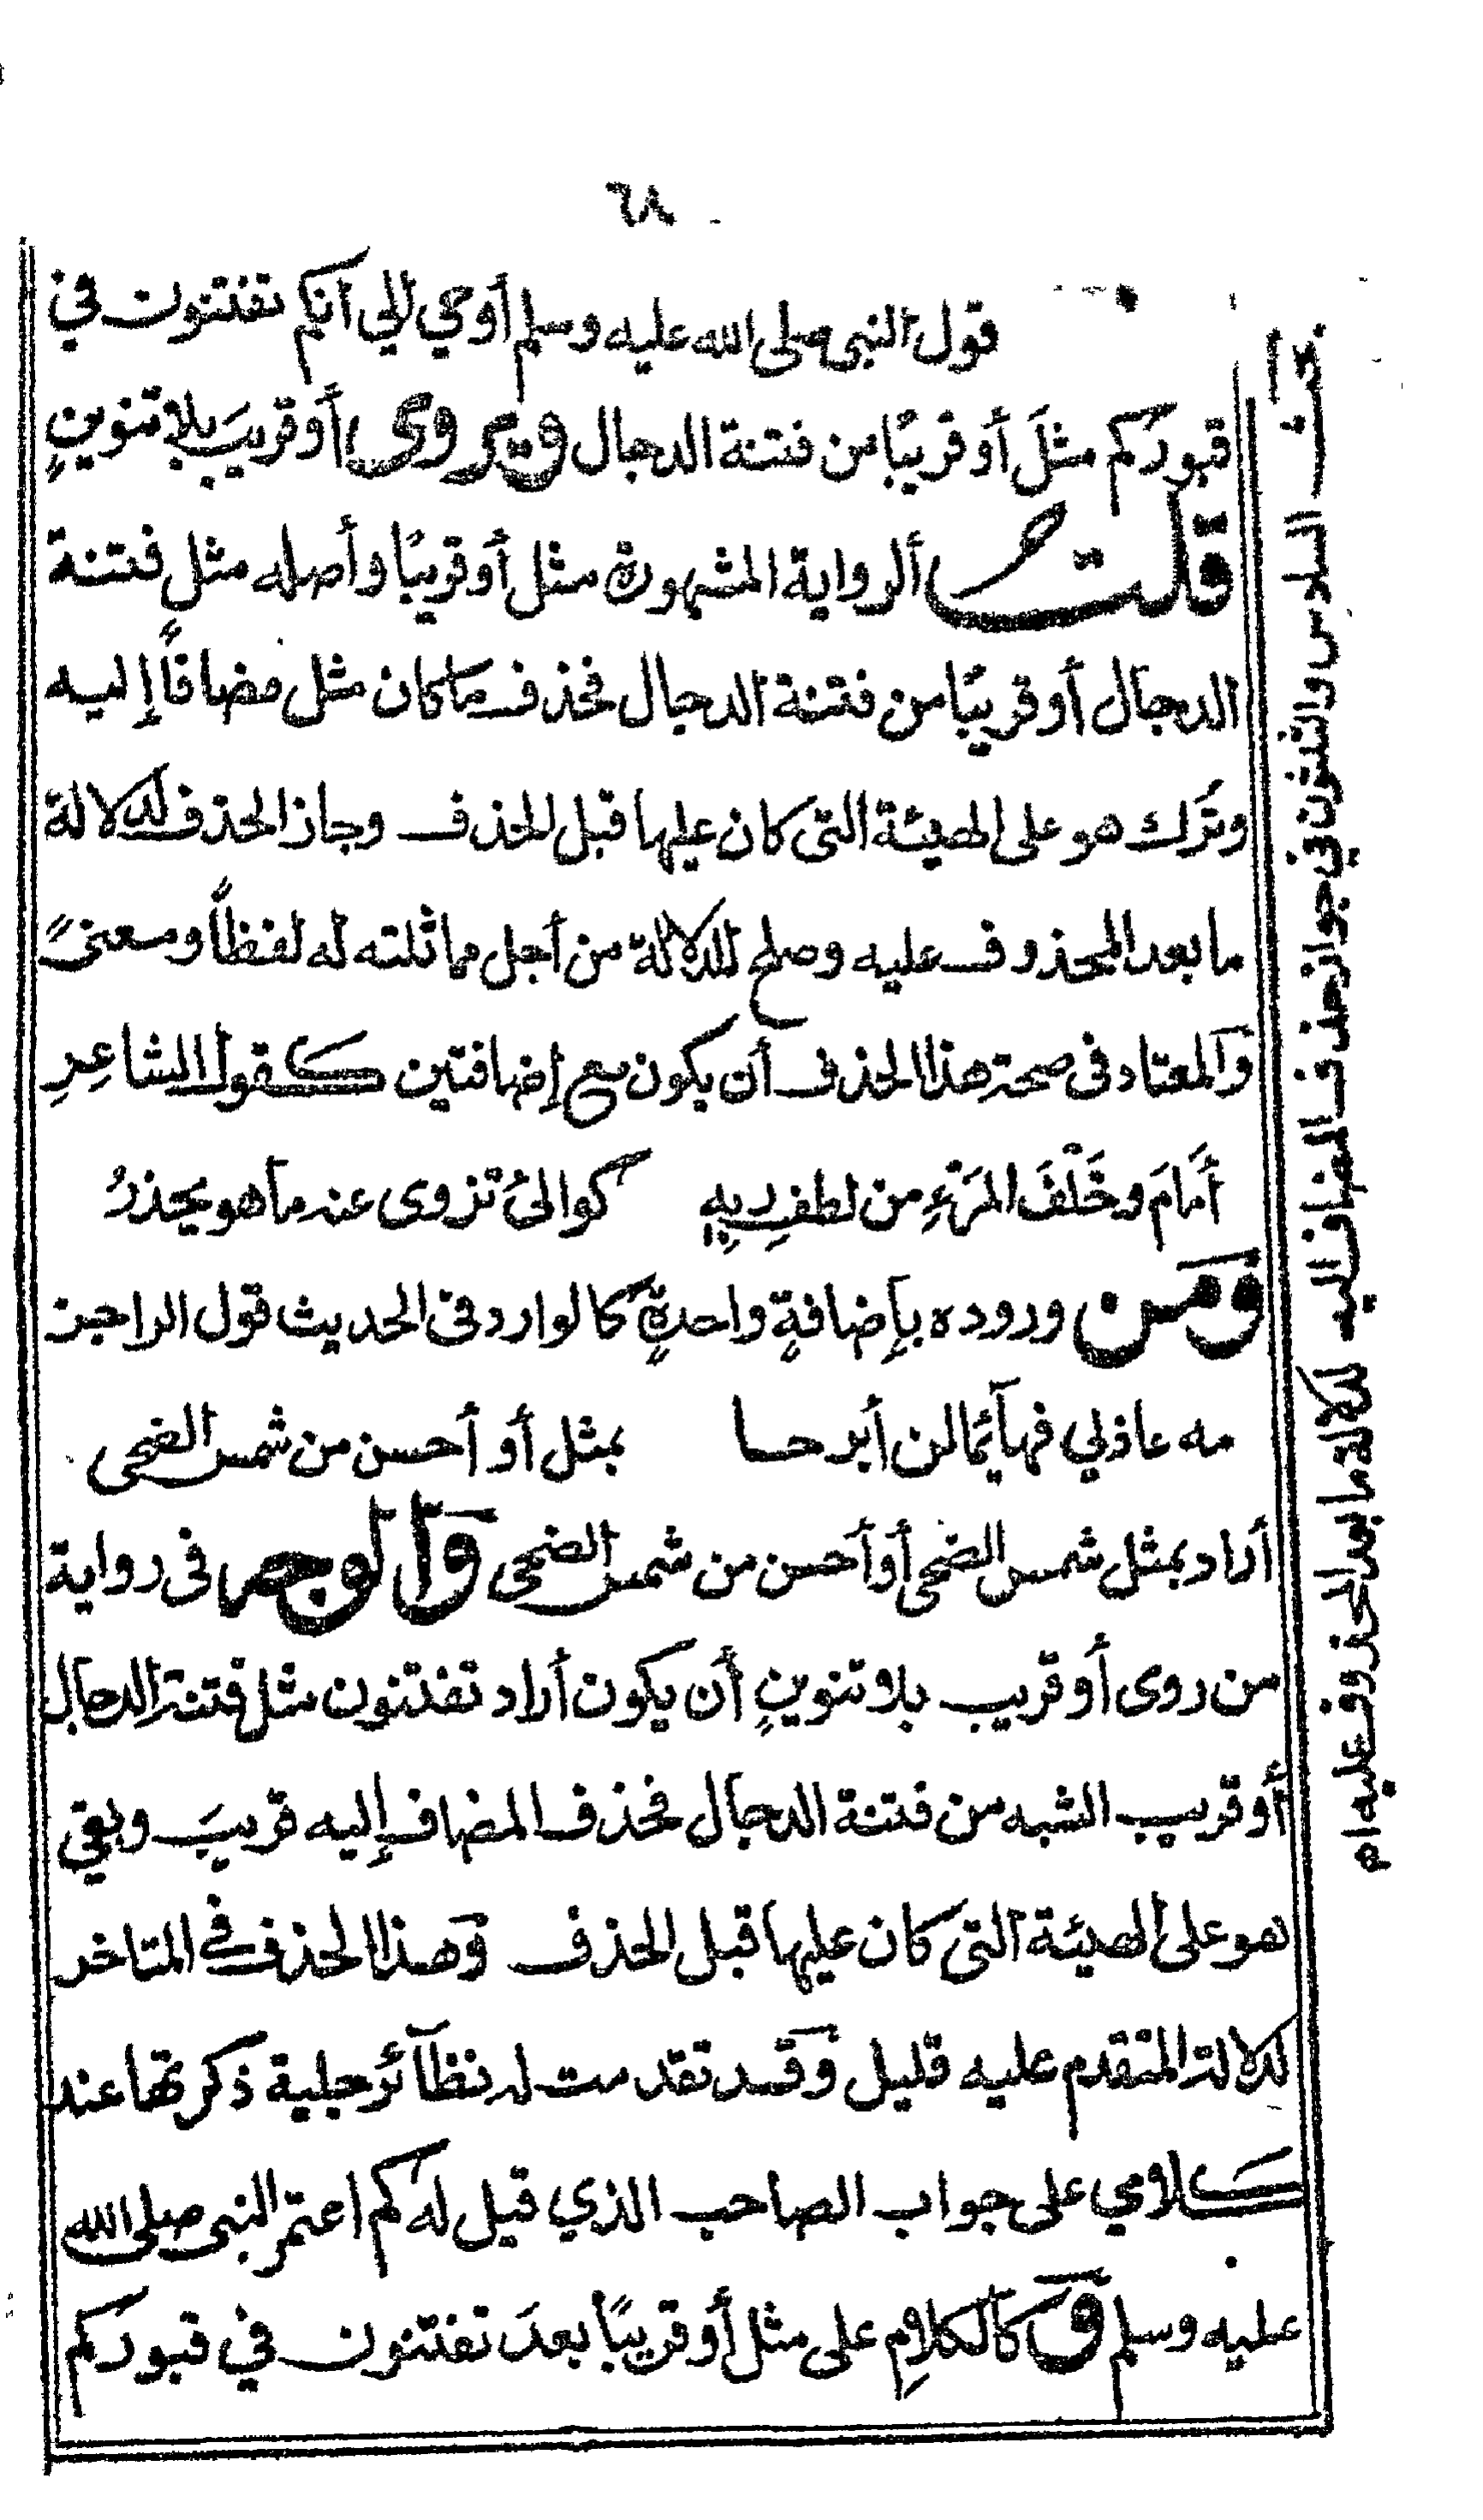 ٦٨
قول النبي صلى الله عليه وسلم أوحي إلي انكم تفتنون في
قبوركم مثلَ أو قريبًا من فتنة الدجال ويروى أو قريبَ بلا تنوينٍ
قلت ألرواية المشهورة مثل أو قريبًا وأصله مثل فتنة
الدجال أو قريبًا من فتنة الدجال فحذف ما كان مثل مضافًا إليه
وتُرك هو على الهيئة التي كان عليها قبل الحذف وجاز الحذف لدلالة
ما بعد المحذوف عليه وصلح للدلالة من أجل مماثلته له لفظاً ومعنىً
والمعتاد فى صحة هذا الحذف أن يكون مع إضافتين كقول الشاعرِ
أمامَ وخَلْفَ المَرْءِ من لطفِ ربِهِ كوالئُ تزوى عنه ما هو يحذرُ
ومن وروده بإضافةٍ واحدةٍ كالوارد فى الحديث قول الراجز
مه عاذلي فهآئما لن أبرحا بمثل أو أحسن من شمس الضحى
أراد بمثل شمس الضحى أو أحسن من شمس الضحى والوجه فى رواية
من روى أو قريب بلا تنوينٍ أن يكون أراد تفتنون مثل فتنة الدجال
أو قريب الشبه من فتنة الدجال فحذف المضاف إليه قريبَ وبقي
هو على الهيئة التي كان عليها قبل الحذف وهذا الحذف في المتاخر
لدلالة المتقدم عليه قليل وقد تقدمت له نظآئر جلية ذكرتها عند
كلامي على جواب الصاحب الذي قيل له كم اعتمر النبي صلى الله
عليه وسلم وكالكلامِ على مثل أو قريبًا بعدَ تفتنون في قبوركم
السادس والثلاثون في جواز حذف المضاف إليه لدلالة ما بعد المحذوف عليه